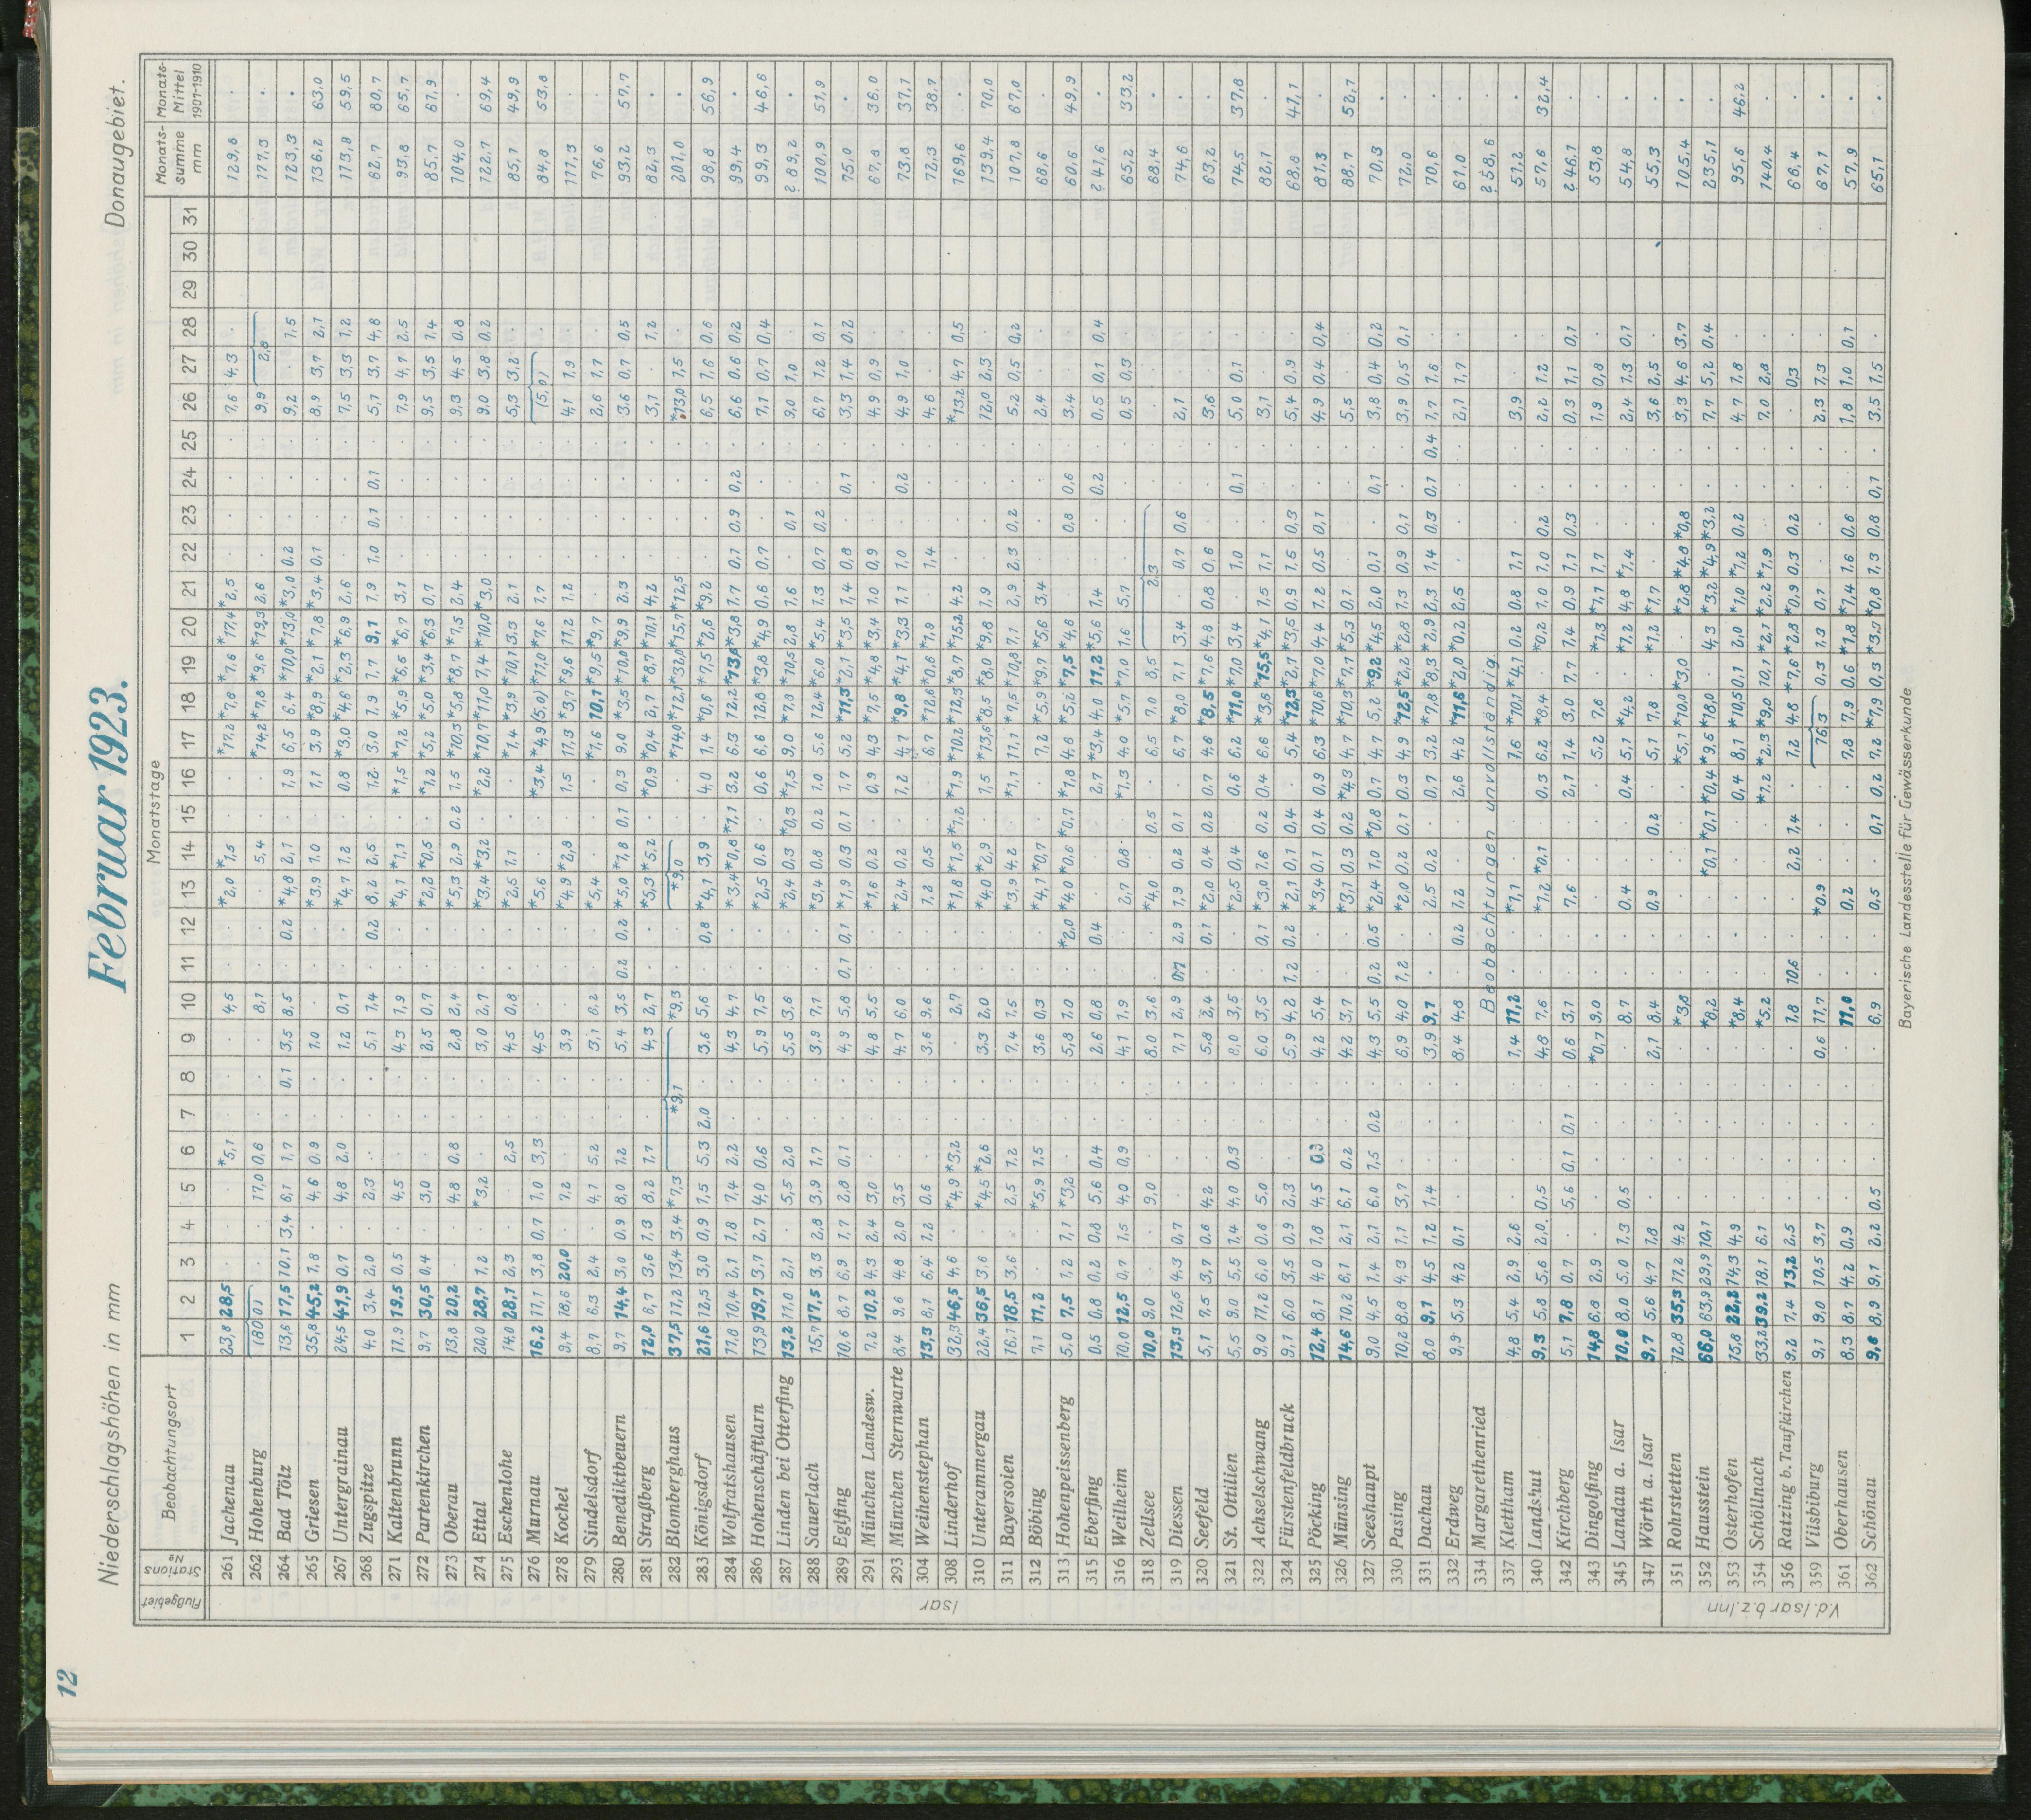 12
Niederschlagshöhen in mm
Februar 1923.
Donaugebiet.
Flußgebiet Stations № Beobachtungsort Monatstage Monats-summe mm Monats-Mittel 1901-1910
1 2 3 4 5 6 7 8 9 10 11 12 13 14 15 16 17 18 19 20 21 22 23 24 25 26 27 28 29 30 31
Isar
261 Jachenau 23,8 28,5 . . . *5,1 . . . 4,5 . . *2,0 *1,5 . . *17,2 *7,8 *7,6 *17,4 *2,5 . . . . 7,6 4,3 . 129,8 .
262 Hohenburg (80,0) . . 17,0 0,6 . . . 8,1 . . . 5,4 . . *14,2 *7,8 *9,6 *19,3 2,6 . . . . 9,9 2,8 177,3 .
264 Bad Tölz 13,6 17,5 10,1 3,4 6,1 1,7 . 0,1 3,5 8,5 . 0,2 *4,8 2,1 . 1,9 6,5 6,4 *10,0 *13,0 *3,0 0,2 . . . 9,2 . 1,5 123,3 .
265 Griesen 35,8 45,2 1,8 . 4,6 0,9 . . 1,0 . . . *3,9 1,0 . 1,1 3,9 *8,9 *2,1 *7,8 *3,4 0,1 . . . 8,9 3,7 2,1 136,2 63,0
267 Untergrainau 24,5 41,9 0,7 . 4,8 2,0 . . 1,2 0,7 . . *4,7 1,2 . 0,8 *3,0 *4,6 *2,3 *6,9 2,6 . . . . 7,5 3,3 1,2 113,8 59,5
268 Zugspitze 4,0 3,4 2,0 . 2,3 . . . 5,1 1,4 . 0,2 8,2 2,5 . 1,2 3,0 1,9 1,7 9,1 1,9 1,0 0,1 0,1 . 5,1 3,7 4,8 62,7 80,7
271 Kaltenbrunn 11,9 19,5 0,5 . 4,5 . . . 4,3 1,9 . . *4,1 *1,1 . *1,5 *7,2 *5,9 *6,6 *6,7 3,1 . . . . 7,9 4,7 2,5 93,8 65,7
272 Partenkirchen 9,7 30,5 0,4 . 3,0 . . . 2,5 0,7 . . *2,2 *0,5 . *1,2 *5,2 *5,0 *3,4 *6,3 0,7 . . . . 9,5 3,5 1,4 85,7 61,9
273 Oberau 13,8 20,2 . . 4,8 0,8 . . 2,8 2,4 . . *5,3 2,9 0,2 1,5 *10,3 *5,8 *8,7 *7,5 2,4 . . . . 9,3 4,5 0,8 104,0 .
274 Ettal 20,0 28,7 1,2 . *3,2 . . . 3,0 2,7 . . *3,4 *3,2 . *2,2 *10,7 *11,0 7,4 *10,0 *3,0 . . . . 9,0 3,8 0,2 122,7 69,4
275 Eschenlohe 14,0 28,1 2,3 . . 2,5 . . 4,5 0,8 . . *2,5 1,1 . . *1,4 *3,9 *10,1 13,3 2,1 . . . . 5,3 3,2 . 85,7 49,9
276 Murnau 16,2 11,1 3,8 0,7 1,0 3,3 . . 4,5 . . . *5,6 . . *3,4 *4,9 (5,0) *17,0 *7,6 1,7 . . . . (5,0) . 84,8 53,8
278 Kochel 9,4 18,6 20,0 . 7,2 . . . 3,9 . . . *4,9 *2,8 . 1,5 17,3 *3,7 *9,6 11,2 1,2 . . . . 4,1 1,9 . 117,3 .
279 Sindelsdorf 8,7 6,3 2,4 . 4,1 5,2 . . 3,1 6,2 . . *5,4 . . . *1,6 10,7 *9,5 *9,7 . . . . . 2,6 1,7 . 76,6 .
280 Benediktbeuern 9,7 14,4 3,0 0,9 8,0 1,2 . . 5,4 3,5 0,2 0,2 *5,0 *7,8 0,1 0,3 9,0 *3,5 *10,0 *9,9 2,3 . . . . 3,6 0,7 0,5 93,2 57,7
281 Straßberg 12,0 6,7 3,6 1,3 8,2 1,7 . . 4,3 2,7 . . *5,3 *5,2 . *0,9 *0,4 2,7 *8,7 *10,1 4,2 . . . . 3,1 . 1,2 82,3 .
282 Blomberghaus 37,5 17,2 13,4 3,4 *7,3 *9,1 *9,3 . . *9,0 . . *14,8 *12,1 *32,0 *15,7 *12,5 . . . . *13,0 1,5 . 201,0 .
283 Königsdorf 21,6 12,5 3,0 0,9 1,5 5,3 2,0 . 3,6 5,6 . 0,8 *4,1 3,9 . 4,0 1,4 *0,6 *7,5 *2,6 *9,2 . . . . 6,5 1,6 0,6 98,8 56,9
284 Wolfratshausen 11,8 10,4 2,1 1,8 7,4 2,2 . . 4,3 4,7 . . *3,4 *0,8 *7,1 3,2 6,3 12,2 *13,6 *3,8 1,7 0,1 0,9 0,2 . 6,6 0,6 0,2 99,4 .
286 Hohenschäftlarn 13,9 19,7 3,7 2,7 4,0 0,6 . . 5,9 7,5 . . *2,5 0,6 . 0,6 6,6 12,8 *3,8 *4,9 0,6 0,7 . . . 7,1 0,7 0,4 99,3 46,6
287 Linden bei Otterfing 13,2 11,0 2,1 . 5,5 2,0 . . 5,5 3,6 . . *2,4 0,3 *0,3 *1,5 9,0 *7,8 *10,5 2,8 1,6 . 0,1 . . 9,0 1,0 . ? 89,2 .
288 Sauerlach 15,7 17,5 3,3 2,8 3,9 1,7 . . 3,9 7,1 . . *3,4 0,8 0,2 1,0 5,6 12,4 *6,0 *5,4 1,3 0,7 0,2 . . 6,7 1,2 0,1 100,9 51,9
289 Eglfing 10,6 8,7 6,9 1,7 2,8 0,1 . . 4,9 5,8 0,1 0,1 *1,9 0,3 0,1 1,7 5,2 *11,3 *2,1 *3,5 1,4 0,8 . 0,1 . 3,3 1,4 0,2 75,0 .
291 München Landesw. 7,2 10,2 4,3 2,4 3,0 . . . 4,8 5,5 . . *1,6 0,2 . 0,9 4,3 *7,5 *4,8 *3,4 1,0 0,9 . . . 4,9 0,9 . 67,8 36,0
293 München Sternwarte 8,4 9,6 4,8 2,0 3,5 . . . 4,7 6,0 . . *2,4 0,2 . 1,2 4,7 *9,8 *4,1 *3,3 1,1 1,0 . 0,2 . 4,9 1,0 . 73,8 37,1
304 Weihenstephan 13,3 8,1 6,4 1,2 0,6 . . . 3,6 9,6 . . 1,2 0,5 . . 6,7 *12,6 *0,6 *1,9 . 1,4 . . . 4,6 . . 72,3 38,7
308 Linderhof 32,5 46,5 4,6 . *4,9 *3,2 . . . 2,7 . . *1,8 *1,5 *1,2 *1,9 *10,2 *12,3 *8,7 *15,2 4,2 . . . . *13,2 4,7 0,5 169,6 .
310 Unterammergau 22,4 36,5 3,6 . *4,5 *2,6 . . 3,3 2,0 . . *4,0 *2,9 . 1,5 *13,6 *8,5 *8,0 *9,8 1,9 . . . . 12,0 2,3 . 139,4 70,0
311 Bayersoien 16,1 18,5 3,6 . 2,5 1,2 . . 7,4 1,5 . . *3,9 4,2 . *1,1 11,1 *7,5 *10,8 7,1 2,9 2,3 0,2 . . 5,2 0,5 0,2 107,8 67,0
312 Böbing 7,1 11,2 . . *5,9 1,5 . . 3,6 0,3 . . *4,1 *0,7 . . 7,2 *5,9 *9,7 *5,6 3,4 . . . . 2,4 . . 68,6 .
313 Hohenpeissenberg 5,0 7,5 1,2 1,1 *3,2 . . . 5,8 1,0 . *2,0 *4,0 *0,6 *0,7 *1,8 4,8 *5,2 *7,5 *4,6 . . 0,8 0,6 . 3,4 . . 60,6 49,9
315 Eberfing 0,5 0,8 0,2 0,8 5,6 0,4 . . 2,6 0,8 . 0,4 . . . 2,7 *3,4 4,0 11,2 *5,6 1,4 . . 0,2 . 0,5 0,1 0,4 ? 41,6 .
316 Weilheim 10,0 12,5 0,7 1,5 4,0 0,9 . . 4,1 1,9 . . 2,7 0,8 . *1,3 4,0 *5,7 *7,0 1,6 5,7 . . . . 0,5 0,3 . 65,2 33,2
318 Zellsee 10,0 9,0 . . 9,0 . . . 8,0 3,6 . . *4,0 . 0,5 . 6,5 7,0 8,5 2,3 . . . . . 68,4 .
319 Diessen 13,3 12,5 4,3 0,7 . . . . 7,1 2,9 0,1 2,9 1,9 0,2 0,1 . 6,7 *8,0 7,1 3,4 . 0,7 0,6 . . 2,1 . . 74,6 .
320 Seefeld 5,1 7,5 3,7 0,6 4,2 . . . 5,8 2,4 . 0,1 *2,0 0,4 0,2 0,7 4,6 *8,5 *7,6 4,8 0,8 0,6 . . . 3,6 . . 63,2 .
321 St. Ottilien 5,5 9,0 5,5 1,4 4,0 0,3 . . 8,0 3,5 . . *2,5 0,4 . 0,6 6,2 *11,0 *7,0 3,4 . 1,0 . 0,1 . 5,0 0,1 . 74,5 37,8
322 Achselschwang 9,0 17,2 6,0 0,6 5,0 . . . 6,0 3,5 . 0,1 *3,0 1,6 0,2 0,4 6,6 *3,6 *15,5 *4,1 1,5 1,1 . . . 3,1 . . 82,1 .
324 Fürstenfeldbruck 9,1 6,0 3,5 0,9 2,3 . . . 5,9 4,2 1,2 0,2 *2,1 0,1 0,4 . 5,4 *12,3 *2,7 *3,5 0,9 1,5 0,3 . . 5,4 0,9 . 68,8 41,1
325 Pöcking 12,4 8,1 4,0 1,8 4,5 0,3 . . 4,2 5,4 . . *3,4 0,1 0,4 0,9 6,3 *10,6 *7,0 4,4 1,2 0,5 0,1 . . 4,9 0,4 0,4 81,3 .
326 Münsing 14,6 10,2 6,1 2,1 6,1 0,2 . . 4,2 3,7 . . *3,1 0,3 0,2 *4,3 4,7 *10,3 *7,7 *5,3 0,1 . . . . 5,5 . . 88,7 52,7
327 Seeshaupt 9,0 4,5 1,4 2,1 6,0 1,5 0,2 . 4,3 5,5 0,2 0,5 *2,4 1,0 *0,8 0,7 4,7 5,2 *9,2 *4,5 2,0 0,1 . 0,1 . 3,8 0,4 0,2 70,3 .
330 Pasing 10,2 8,8 4,3 1,1 3,7 . . . 6,9 4,0 1,2 . *2,0 0,2 0,1 0,3 4,9 *12,5 *2,2 *2,8 1,3 0,9 0,1 . . 3,9 0,5 0,1 72,0 .
331 Dachau 8,0 9,1 4,5 1,2 1,4 . . . 3,9 9,1 . . 2,5 0,2 . 0,7 3,2 *7,8 *8,3 *2,9 2,3 1,4 0,3 0,1 0,4 1,7 1,6 . 70,6 .
332 Erdweg 9,9 5,3 4,2 0,1 . . . . 8,4 4,8 . 0,2 1,2 . . 2,6 4,2 *11,6 *2,0 *0,2 2,5 . . . . 2,1 1,7 . 61,0 .
334 Margarethenried Beobachtungen unvollständig. ? 58,6
337 Klettham 4,8 5,4 2,9 2,6 . . . . 1,4 11,2 . . *1,1 . . . 1,6 *10,1 *4,1 0,2 0,8 1,1 . . . 3,9 . . 51,2 .
340 Landshut 9,3 5,8 5,6 2,0 0,5 . . . 4,8 7,6 . . *1,2 *0,1 . 0,3 6,2 *8,4 . *0,2 1,0 1,0 0,2 . . 2,2 1,2 . 57,6 32,4
342 Kirchberg 5,1 7,8 0,7 . 5,6 0,1 0,1 . 0,6 3,1 . . 7,6 . . 2,1 1,4 3,0 7,7 1,4 0,9 1,1 0,3 . . 0,3 1,1 0,1 ? 46,1 .
343 Dingolfing 14,8 6,8 2,9 . . . . . *0,7 9,0 . . . . . . 5,2 7,6 . *1,3 *1,1 1,7 . . . 1,9 0,8 . 53,8 .
345 Landau a. Isar 10,0 8,0 5,0 1,3 0,5 . . . . 8,7 . . 0,4 . . 0,4 5,1 *4,2 . *1,2 4,8 *1,4 . . . 2,4 1,3 0,1 54,8 .
347 Wörth a. Isar 9,7 5,6 4,7 1,8 . . . . 2,1 8,4 . . 0,9 . 0,2 . 5,1 7,8 . *1,2 *1,7 . . . . 3,6 2,5 . 55,3 .
V.d. Isar b.z. Inn
351 Rohrstetten 12,8 35,3 17,2 4,2 . . . . . *3,8 . . . . . . *5,1 *10,0 *3,0 . *2,8 *4,8 *0,8 . . 3,3 4,6 3,7 105,4 .
352 Hausstein 66,0 63,9 29,9 10,1 . . . . . *8,2 . . . *0,1 *0,1 *0,4 *9,5 *18,0 . 4,3 *3,2 *4,9 *3,2 . . 7,7 5,2 0,4 235,1 .
353 Osterhofen 15,8 22,2 14,3 4,9 . . . . . *8,4 . . . . . 0,4 8,1 *10,5 0,1 2,0 *1,0 *1,2 0,2 . . 4,7 1,8 . 95,6 46,2
354 Schöllnach 33,2 39,2 18,1 6,1 . . . . . *5,2 . . . . . *1,2 *2,3 *9,0 10,1 *2,1 *2,2 *1,9 . . . 7,0 2,8 . 140,4 .
356 Ratzing b. Taufkirchen 9,2 7,4 13,2 2,5 . . . . . 1,8 10,6 . . 2,2 1,4 . 1,2 4,8 *7,6 *2,8 *0,9 0,3 0,2 . . . 0,3 . 66,4 .
359 Vilsbiburg 9,1 9,0 10,5 3,7 . . . . 0,6 11,7 . . *0,9 . . 16,3 0,3 1,3 0,1 . . . . 2,3 1,3 . 67,1 .
361 Oberhausen 8,3 8,7 4,2 0,9 . . . . . 11,0 . . 0,2 . . . 7,8 7,9 0,6 *1,8 *1,4 1,6 0,6 . . 1,8 1,0 0,1 57,9 .
362 Schönau 9,6 8,9 9,1 2,2 0,5 . . . . 6,9 . . 0,5 . 0,1 0,2 7,2 *7,9 0,3 *3,7 *0,8 1,3 0,8 0,1 . 3,5 1,5 . 65,1 .
Bayerische Landesstelle für Gewässerkunde